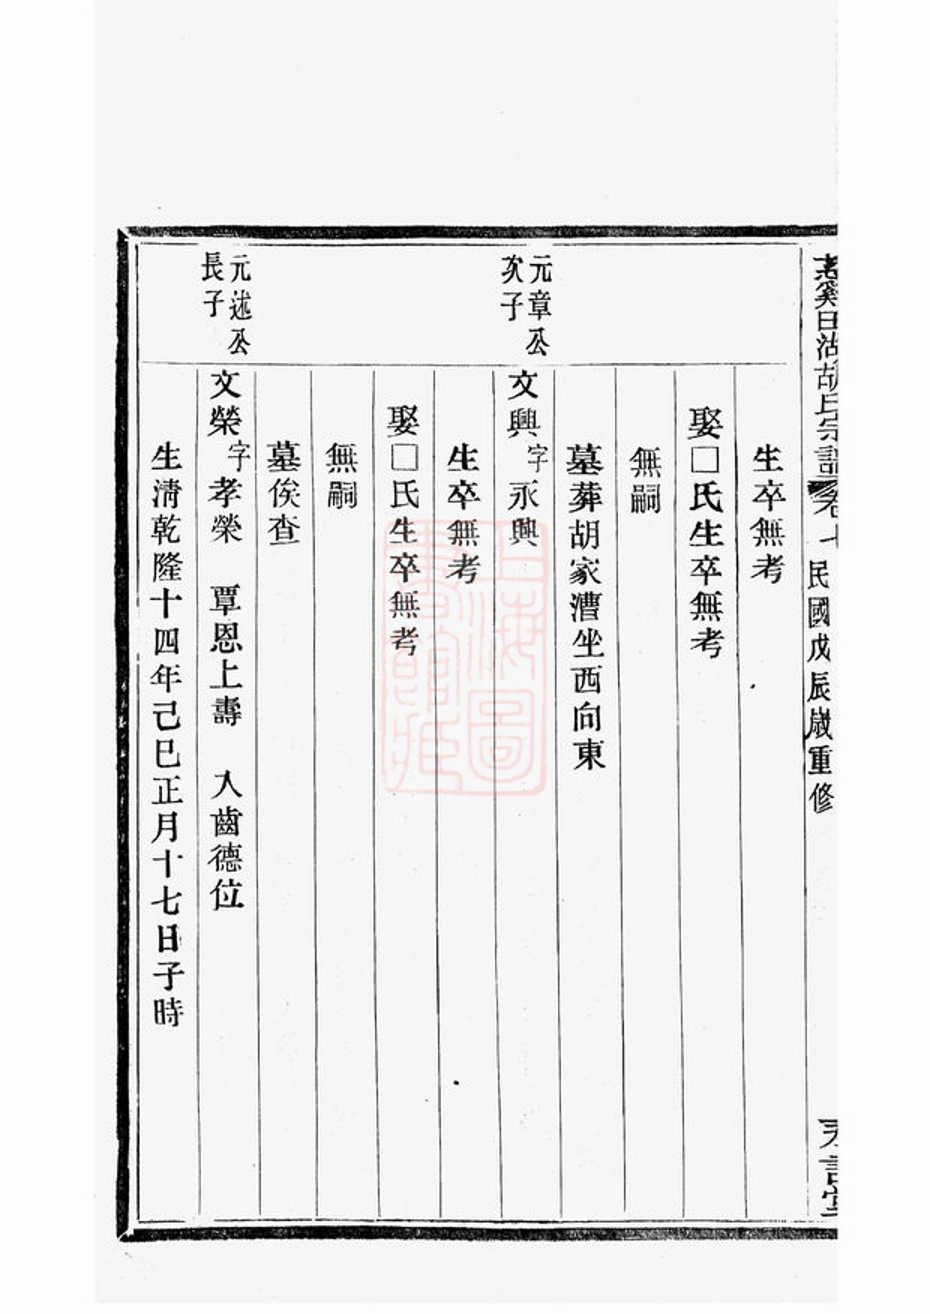 胡氏宗譜 卷七 民國戊辰歲重修
生卒無考
娶□氏生卒無考
無嗣
墓葬胡家漕坐西向東
元章公
次子
文興字永興
生卒無考
娶□氏生卒無考
無嗣
墓俟查
元述公
長子
文榮字孝榮 覃恩上壽 人齒德位
生清乾隆十四年己巳正月十七日子時
上海圖
書館藏